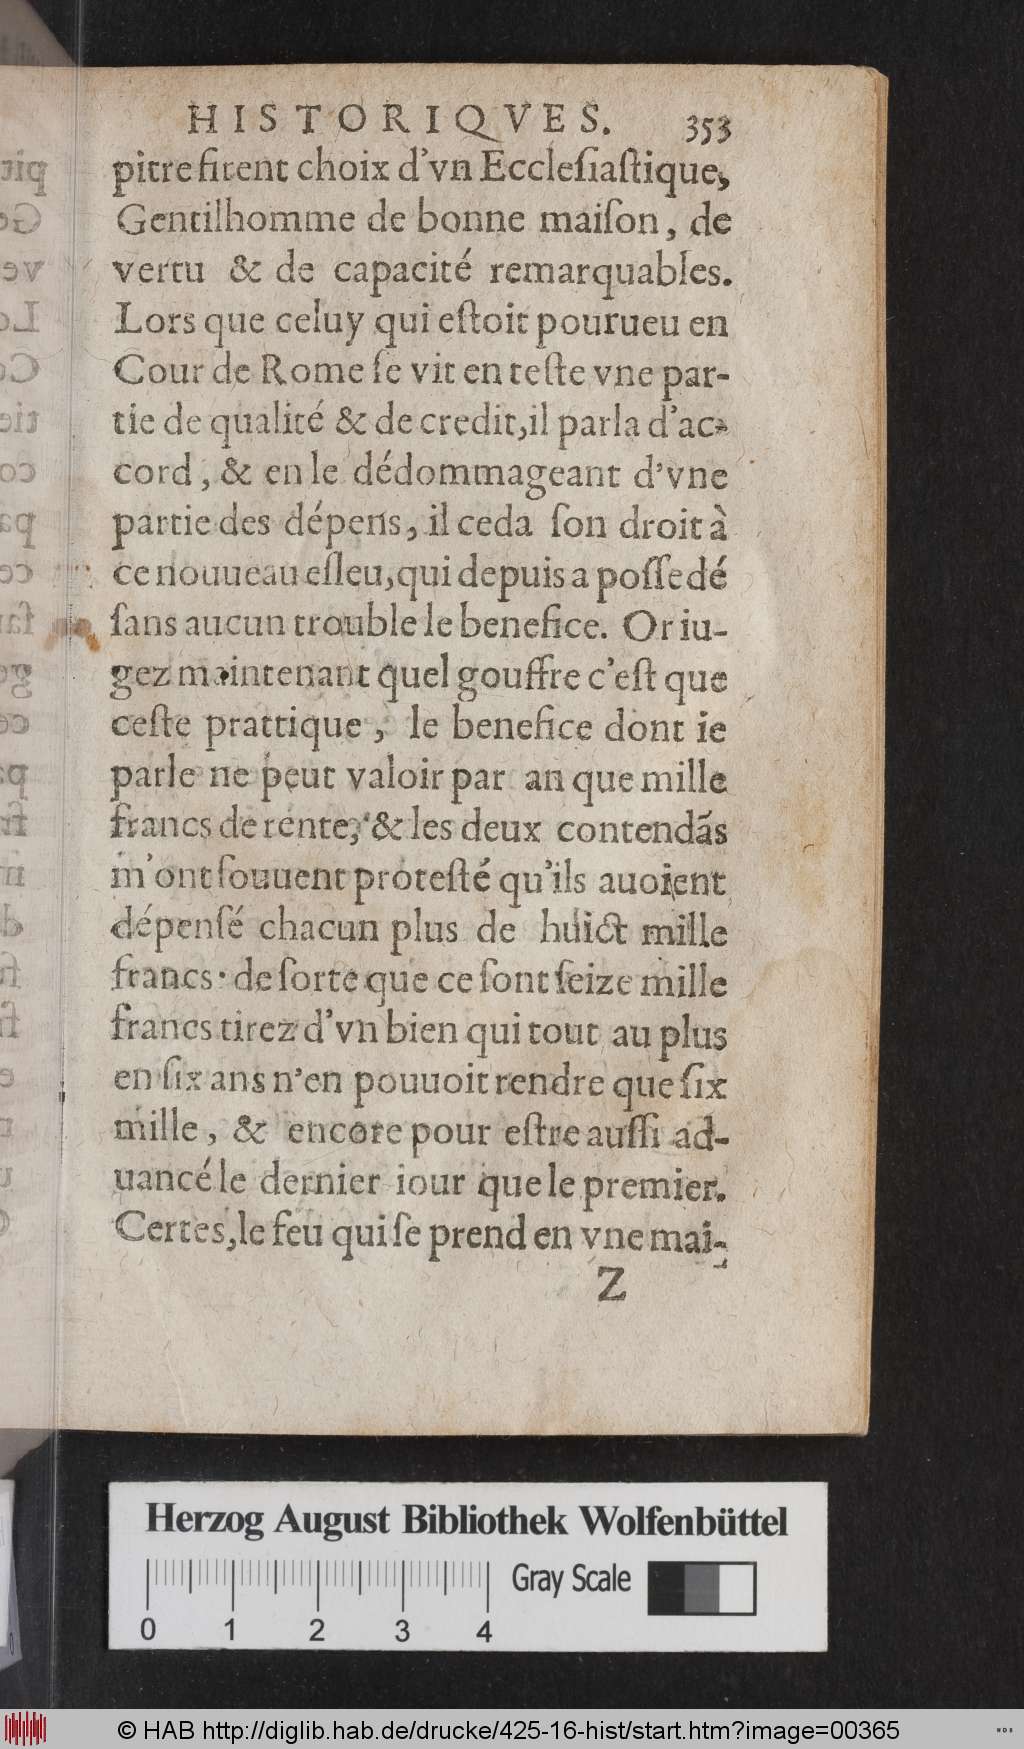 HISTORIQVES. 353
pitre firent choix d'vn Eccleſiaſtique,
Gentilhomme de bonne maiſon, de
vertu & de capacité remarquables.
Lors que celuy qui eſtoit pourueu en
Cour de Rome ſe vit en teſte vne par-
tie de qualité & de credit, il parla d'ac-
cord, & en le dédommageant d'vne
partie des dépens, il ceda ſon droit à
ce nouueau eſleu, qui depuis a poſſedé
ſans aucun trouble le benefice. Or iu-
gez maintenant quel gouffre c'eſt que
ceſte prattique, le benefice dont ie
parle ne peut valoir par an que mille
francs de rente, & les deux contendãs
m'ont ſouuent proteſté qu'ils auoient
dépenſé chacun plus de huict mille
francs· de ſorte que ce ſont ſeize mille
francs tirez d'vn bien qui tout au plus
en ſix ans n'en pouuoit rendre que ſix
mille, & encore pour eſtre auſſi ad-
uancé le dernier iour que le premier.
Certes, le feu qui ſe prend en vne mai-
Z
Herzog August Bibliothek Wolfenbüttel
Gray Scale
0 1 2 3 4
© HAB http://diglib.hab.de/drucke/425-16-hist/start.htm?image=00365